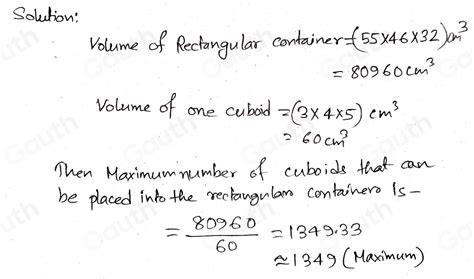 Solution:
Volume of Rectangular container=(55×46×32)cm³
= 80960cm³
Volume of one cuboid = (3×4×5) cm³
= 60cm³
Then Maximum number of cuboids that can
be placed into the rectangular container is -
= 80960/60 = 1349.33
≈1349 (Maximum)
Gauth
Gauth
Gauth
Gauth